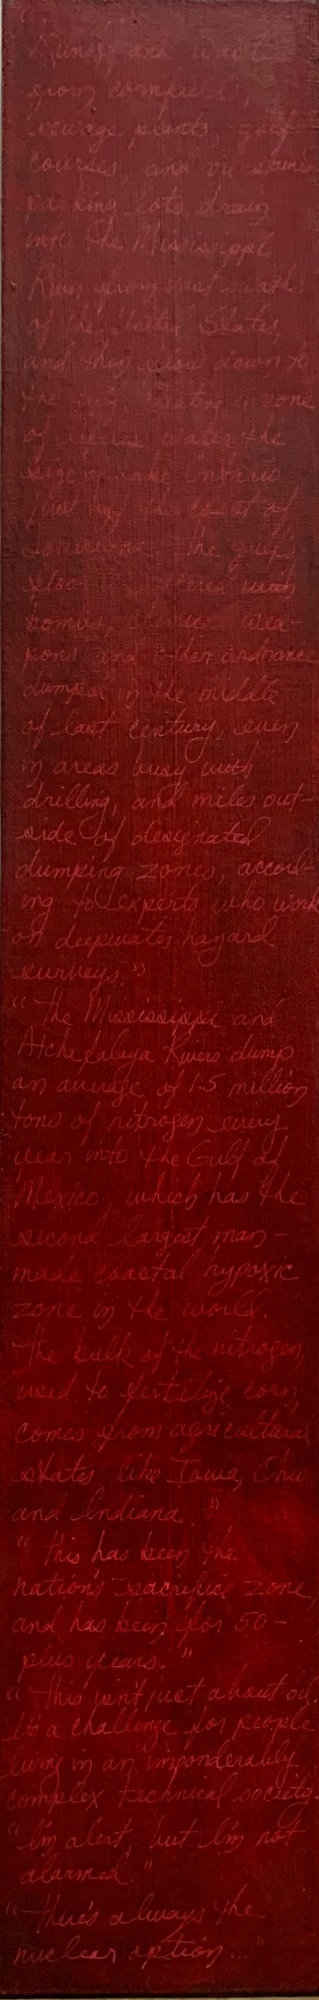 "Runoff and waste
from cornfields,
sewage plants, golf
courses, and oil-stained
parking lots drain
into the Mississippi
River from vast swaths
of the United States,
and then flow down to
the gulf, creating a zone
of lifeless water the
size of Lake Ontario
just off the coast of
Louisiana. The gulf's
floor is littered with
bombs, chemical wea-
pons and other ordnance
dumped in the middle
of last century, even
in areas busy with
drilling, and miles out-
side of designated
dumping zones, accord-
ing to experts who work
on deepwater hazard
surveys."
"The Mississippi and
Atchafalaya Rivers dump
an average of 1.5 million
tons of nitrogen every
year into the Gulf of
Mexico, which has the
second largest man-
made coastal hypoxic
zone in the world.
The bulk of the nitrogen,
used to fertilize corn,
comes from agricultural
states like Iowa, Ohio
and Indiana."
"This has been the
nation's sacrifice zone,
and has been for 50-
plus years."
"This isn't just about oil.
It's a challenge for people
living in an imponderably
complex technical society."
"I'm alert, but I'm not
alarmed."
"There's always the
nuclear option..."